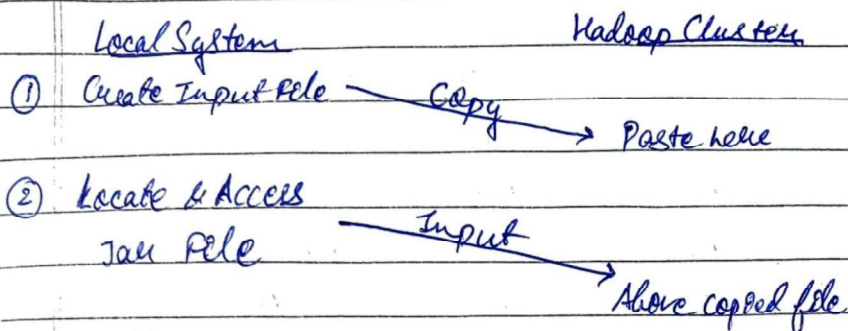 Local System
Hadoop Cluster
① Create Input File
Copy
Paste here
② Locate & Access
Input
Jar File
Above copied file